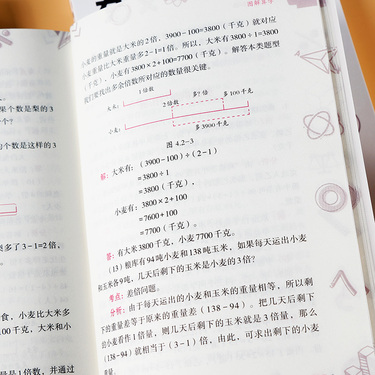 图解直导
小麦的重量就是大米的2倍，3900-100=3800（千克）就对应
小麦重量比大米重量多2-1=1倍。所以，大米有3800÷1=3800
（千克），小麦有3800×2+100=7700（千克）。解答本类题型
我们要找出多余倍数所对应的数量很关键。
1倍数
2倍数
多?倍
多100千克
大米:
小麦:
多3900千克
图 4.2-3
解：大米有：（3900-100）÷（2-1）
=3800÷1
=3800（千克），
小麦有：3800×2+100
=7600+100
=7700（千克）。
答：有大米3800千克，小麦7700千克。
（13）粮库有94吨小麦和138吨玉米，如果每天运出小麦
和玉米各9吨，几天后剩下的玉米是小麦的3倍？
考点：差倍问题。
分析：由于每天运出的小麦和玉米的重量相等，所以剩
下的重量差等于原来的重量差（138-94）。把几天后剩下
的小麦看作1倍量，则几天后剩下的玉米就是3倍量，那么
（138-94）就相当于（3-1）倍，由此，可求出剩下的小麦
重量。
果个数是梨的3
个？
的个数是这样的3
类多了3-1=2倍，
食，小麦比大米多
100千克，大米和小
是1倍数，并通过